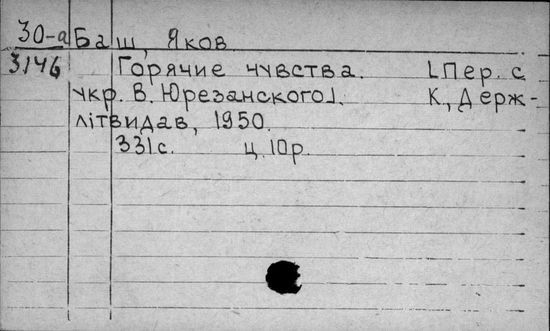 30-а Баш, Яков
3146 Горячие чувства. [Пер. с
укр. В. Юрезанского]. К., Держ-
літвидав, 1950.
331 с. ц. 10 р.